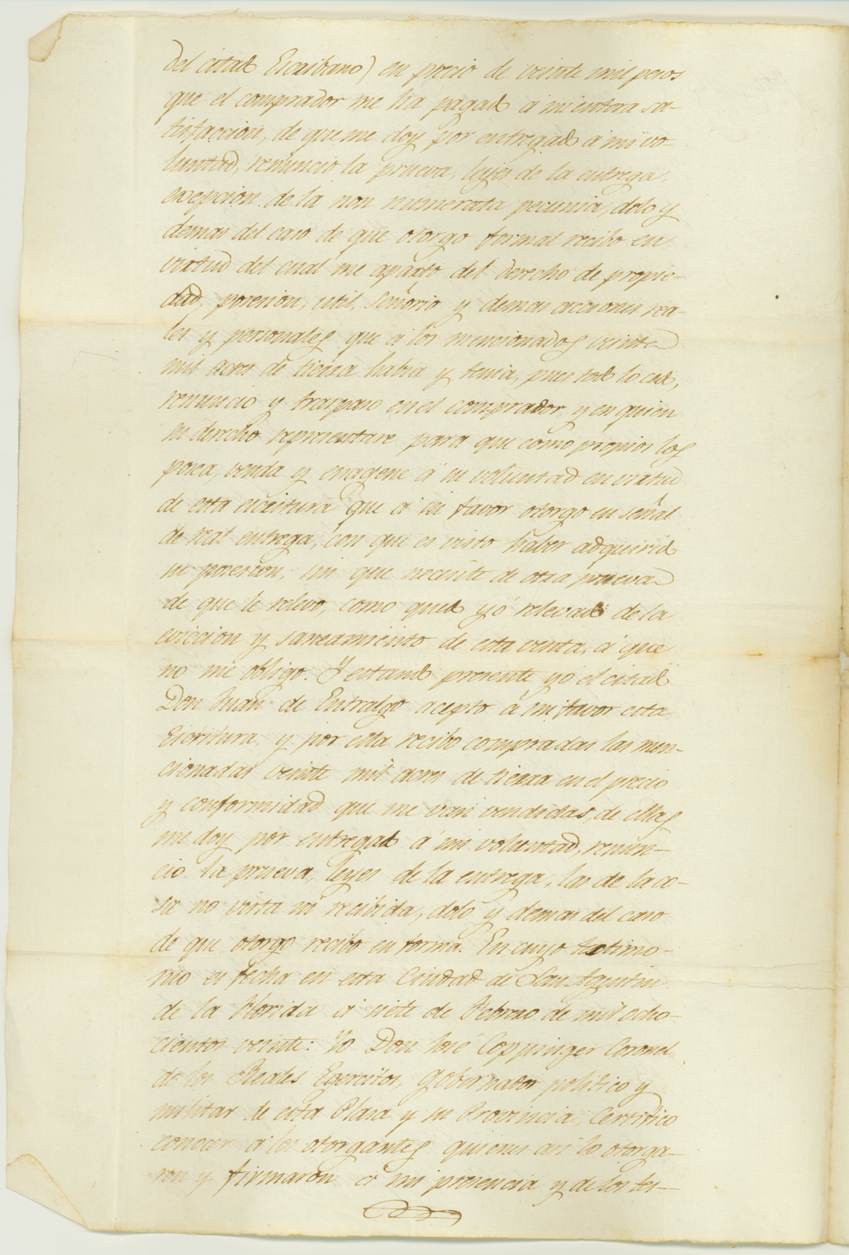 del citado Escribano) en precio de veinte mil pesos
que el comprador me ha pagado á mi entera sa-
tisfaccion, de que me doy por entregado á mi vo
luntad, renuncio la prueva, leyes de la entrega,
excepcion de la non numerata pecunia, dolo y
demas del caso de que otorgo formal recibo en
virtud del cual me aparto del derecho de propie-
dad, posesion, util, señorio y demas acciones rea-
les y personales que á los mencionados veinte
mil acres de tierra habia y tenia, pues todo lo cedo,
renuncio y traspaso en el comprador y en quien
su derecho representare para que como propios los
posea, venda y enagene á su voluntad en virtud
de esta escritura que á su favor otorgo en señal
de real entrega, con que es visto haber adquirido
su posesion, sin que necesite de otra prueva
de que le relevo, como quedo yo relevado de la
eviccion y saneamiento de esta venta, á que
no me obligo. Y estando presente yo el citado
Don Juan de Entralgo acepto á mi favor esta
Escritura y por ella recibo compradas las men-
cionadas veinte mil acres de tierra en el precio
y conformidad que me van vendidas, de ellas
me doy por entregado á mi voluntad, renun-
cio la prueva, leyes de la entrega, las de la co-
sa no vista ni recibida, dolo y demas del caso
de que otorgo recibo en forma. En cuyo testimo-
nio es fecha en esta Ciudad de San Agustin
de la Florida á siete de Febrero de mil ocho-
cientos veinte: Yo Don José Coppinger Coronel
de los Reales Egercitos, Gobernador politico y
militar de esta Plaza y su Provincia, Certifico
conocer á los otorgantes quienes asi lo otorga-
ron y firmaron á mi presencia y de los tes-